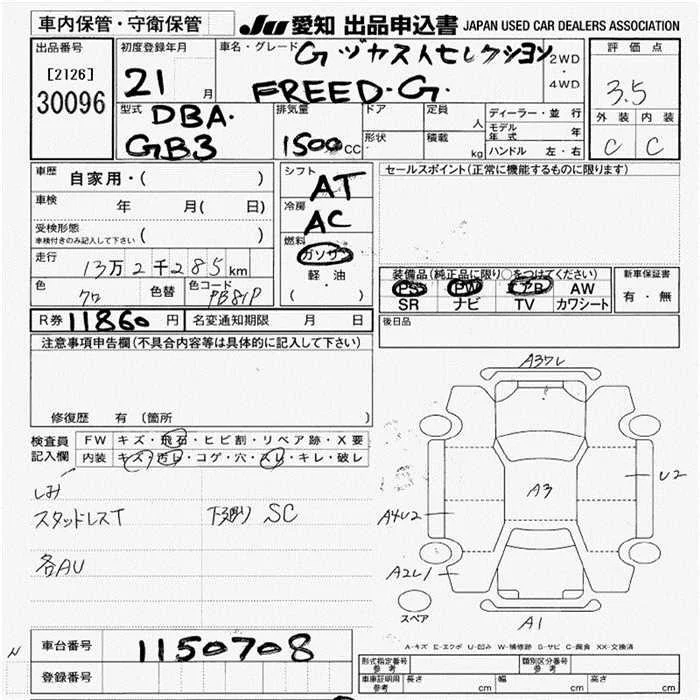 車内保管・守衛保管
JU 愛知 出品申込書 JAPAN USED CAR DEALERS ASSOCIATION
出品番号
[2126]
30096
初度登録年月
21 月
車名・グレード G
FREED・G・
2WD
・
4WD
評価点
3.5
外装 内装
C C
型式 DBA・
GB3
排気量
1500cc
ドア
形状
定員 人
積載 kg
ディーラー・並行
モデル年式 年
ハンドル 左・右
車歴 自家用・( )
車検 年 月( 日)
受検形態
車検付きのみ記入して下さい ( )
走行 13万2千285km
色 クロ 色替 色コード PB81P
シフト AT
冷房 AC
燃料 ガソリン
軽油
( )
セールスポイント(正常に機能するものに限ります)
装備品(純正品に限り○をつけてください)
PS PW エアB AW
SR ナビ TV カワシート
新車保証書
有・無
R券 11860 円 名変通知期限 月 日
後日品
注意事項申告欄(不具合内容等は具体的に記入して下さい)
修復歴 有 (箇所 )
検査員記入欄
FW キズ・飛石・ヒビ割・リペア跡・X要
内装 キズ・汚レ・コゲ・穴・スレ・キレ・破レ
しみ
スタッドレスT
下廻り SC
各AU
A3ワレ
A3
U2
A4U2
A2L1
A1
スペア
A-キズ E-エクボ U-凹み W-補修跡 S-サビ C-腐食 XX-交換済
車台番号 1150708
登録番号
形式指定番号 参考
類別区分番号 参考
車庫証明用 参考
長さ cm 幅 cm 高さ cm